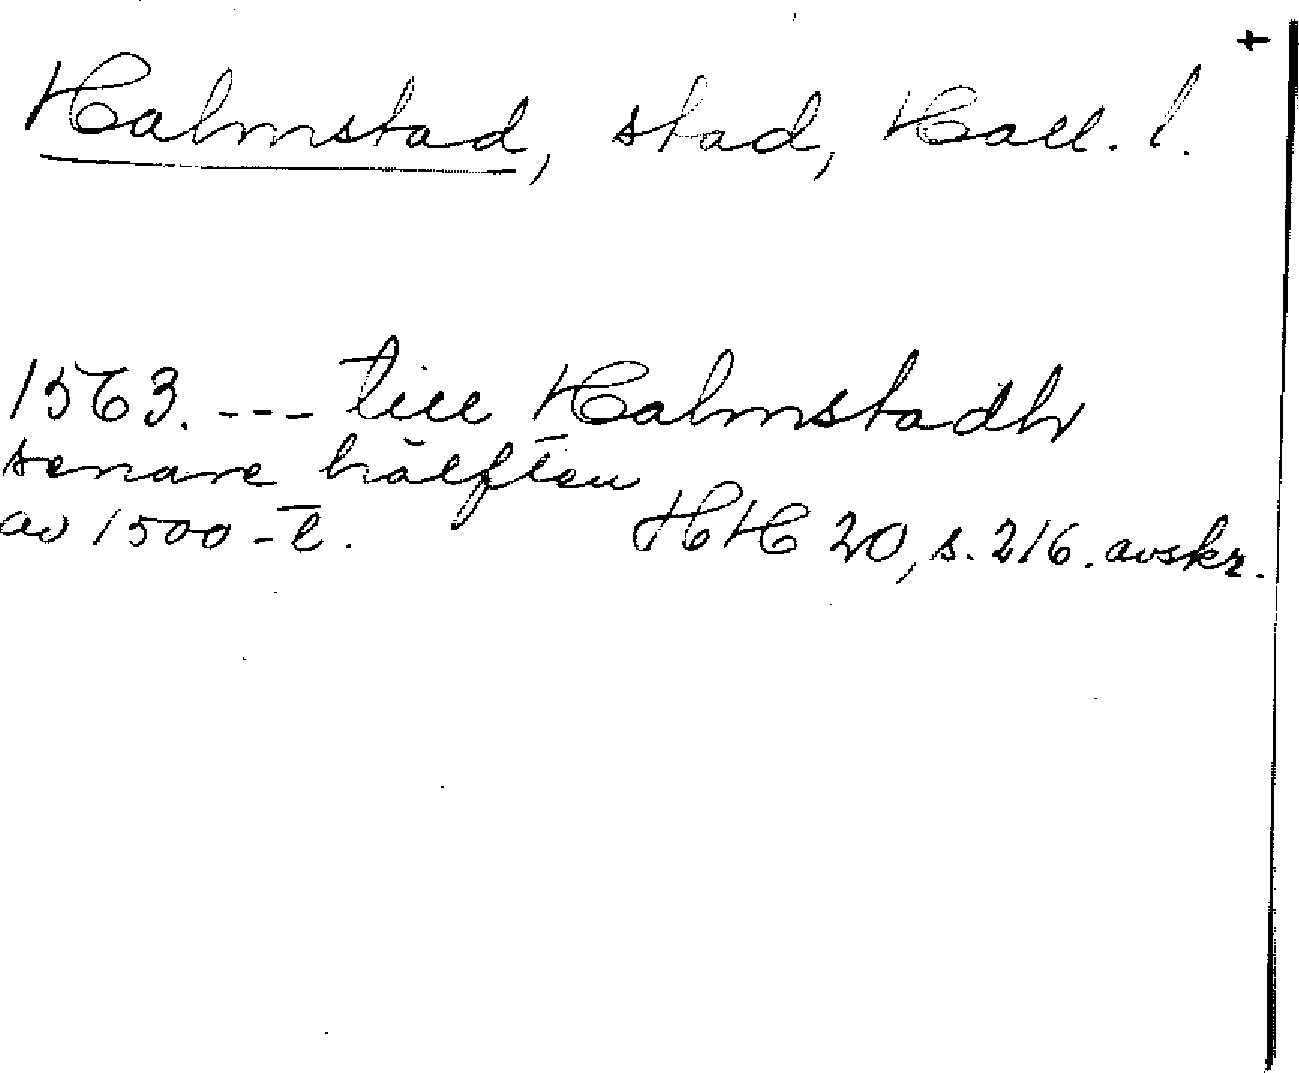 +
Halmstad, stad, Hall. l.
1563. --- till Halmstadh
senare hälften
av 1500-t. HH 20, s. 216. avskr.